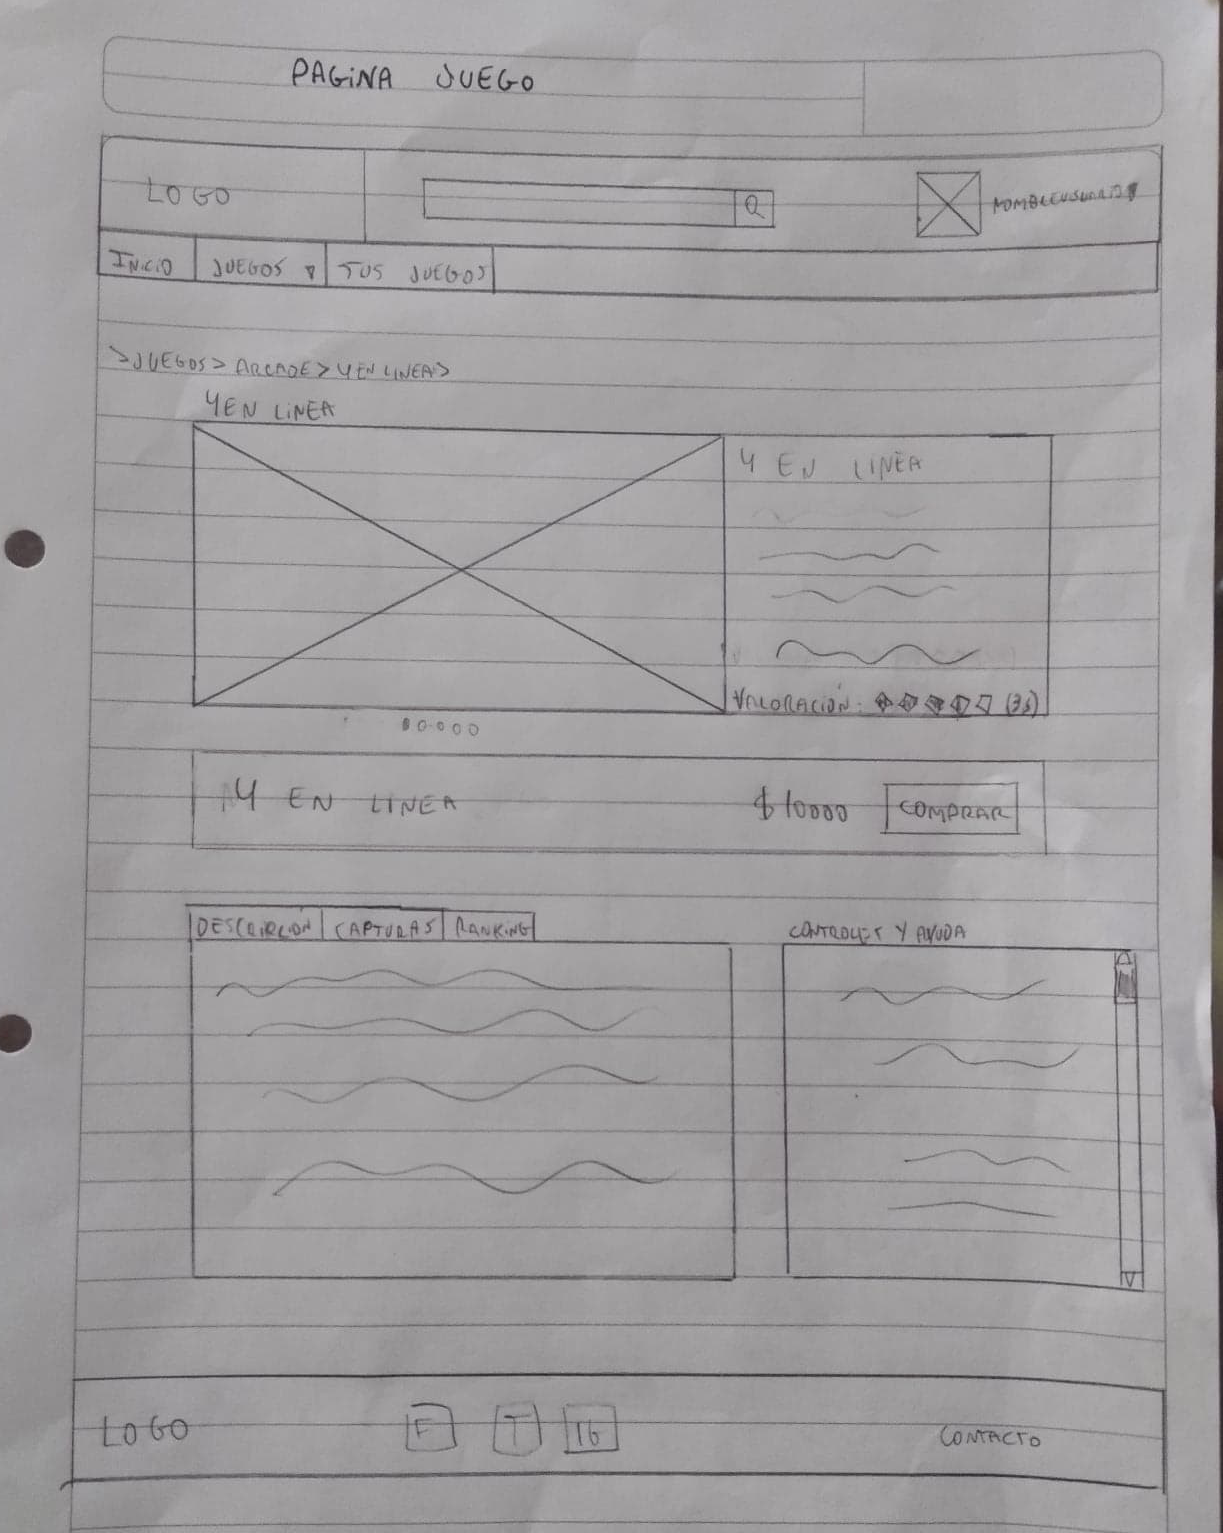 PAGINA JUEGO
LOGO
NOMBREUSUARIO
INICIO JUEGOS TUS JUEGOS
>JUEGOS> ARCADE> 4 EN LINEA>
4 EN LINEA
4 EN LINEA
VALORACIÓN:
4 EN LINEA $10000 COMPRAR
DESCRIPCIÓN CAPTURAS RANKING
CONTROLES Y AYUDA
LOGO F T IG CONTACTO